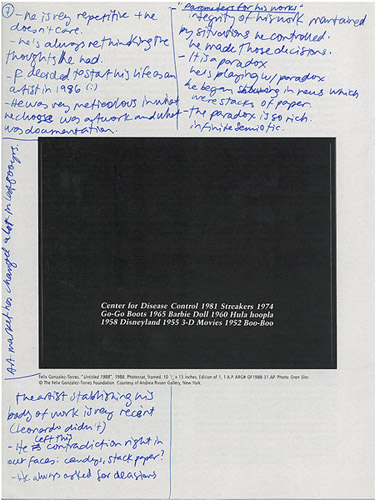 ① - he is very repetitive + he
doesn't care.
- he's always rethinking the
thoughts he had.
- F. decided to start his life as an
artist in 1986 (:)
- He was very meticolous in what
he choose was artwork and what
was documentation.
- "Parameters for his works"
integrity of his work mantained
by situations he controlled.
he made those decisions.
- It is a paradox
he is playing w/ paradox
he began showing in reus which
were stacks of paper.
- the paradox is so rich.
infinite semiotic.
Art market has changed a lot in last 800 yrs.
Center for Disease Control 1981 Streakers 1974
Go-Go Boots 1965 Barbie Doll 1960 Hula hoopla
1958 Disneyland 1955 3-D Movies 1952 Boo-Boo
Felix Gonzalez-Torres, "Untitled 1988", 1988. Photostat, framed. 10 ¼ x 13 inches. Edition of 1, 1 A.P. ARG# GF1988-31.AP. Photo: Oren Slor.
© The Felix Gonzalez-Torres Foundation. Courtesy of Andrea Rosen Gallery, New York.
the artist stablishing his
body of work is very recent
(Leonardo didn't)
left this
- He is contradiction right in
our faces: candys, stack paper?
- He always asked for decisions